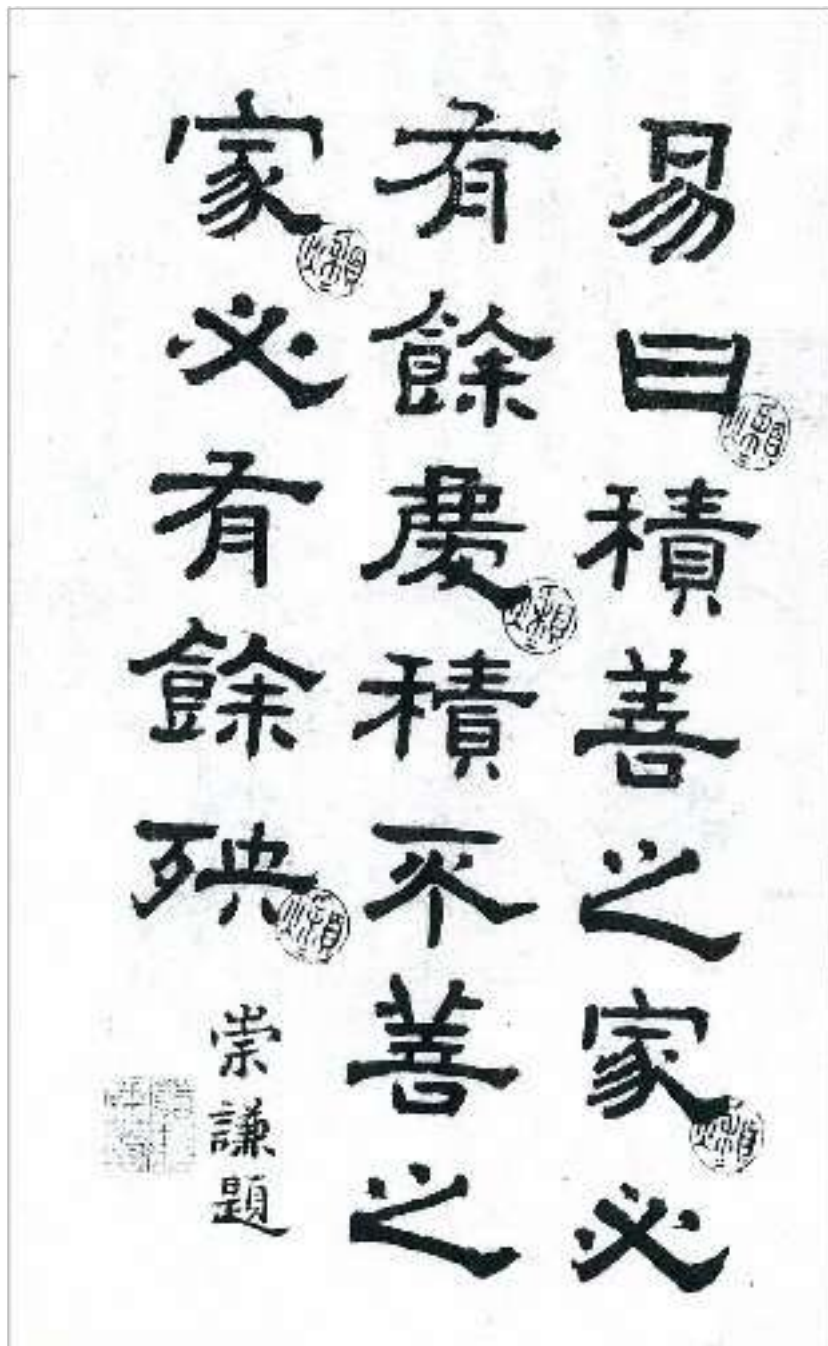 易曰積善之家必
有餘慶積不善之
家必有餘殃
崇謙題